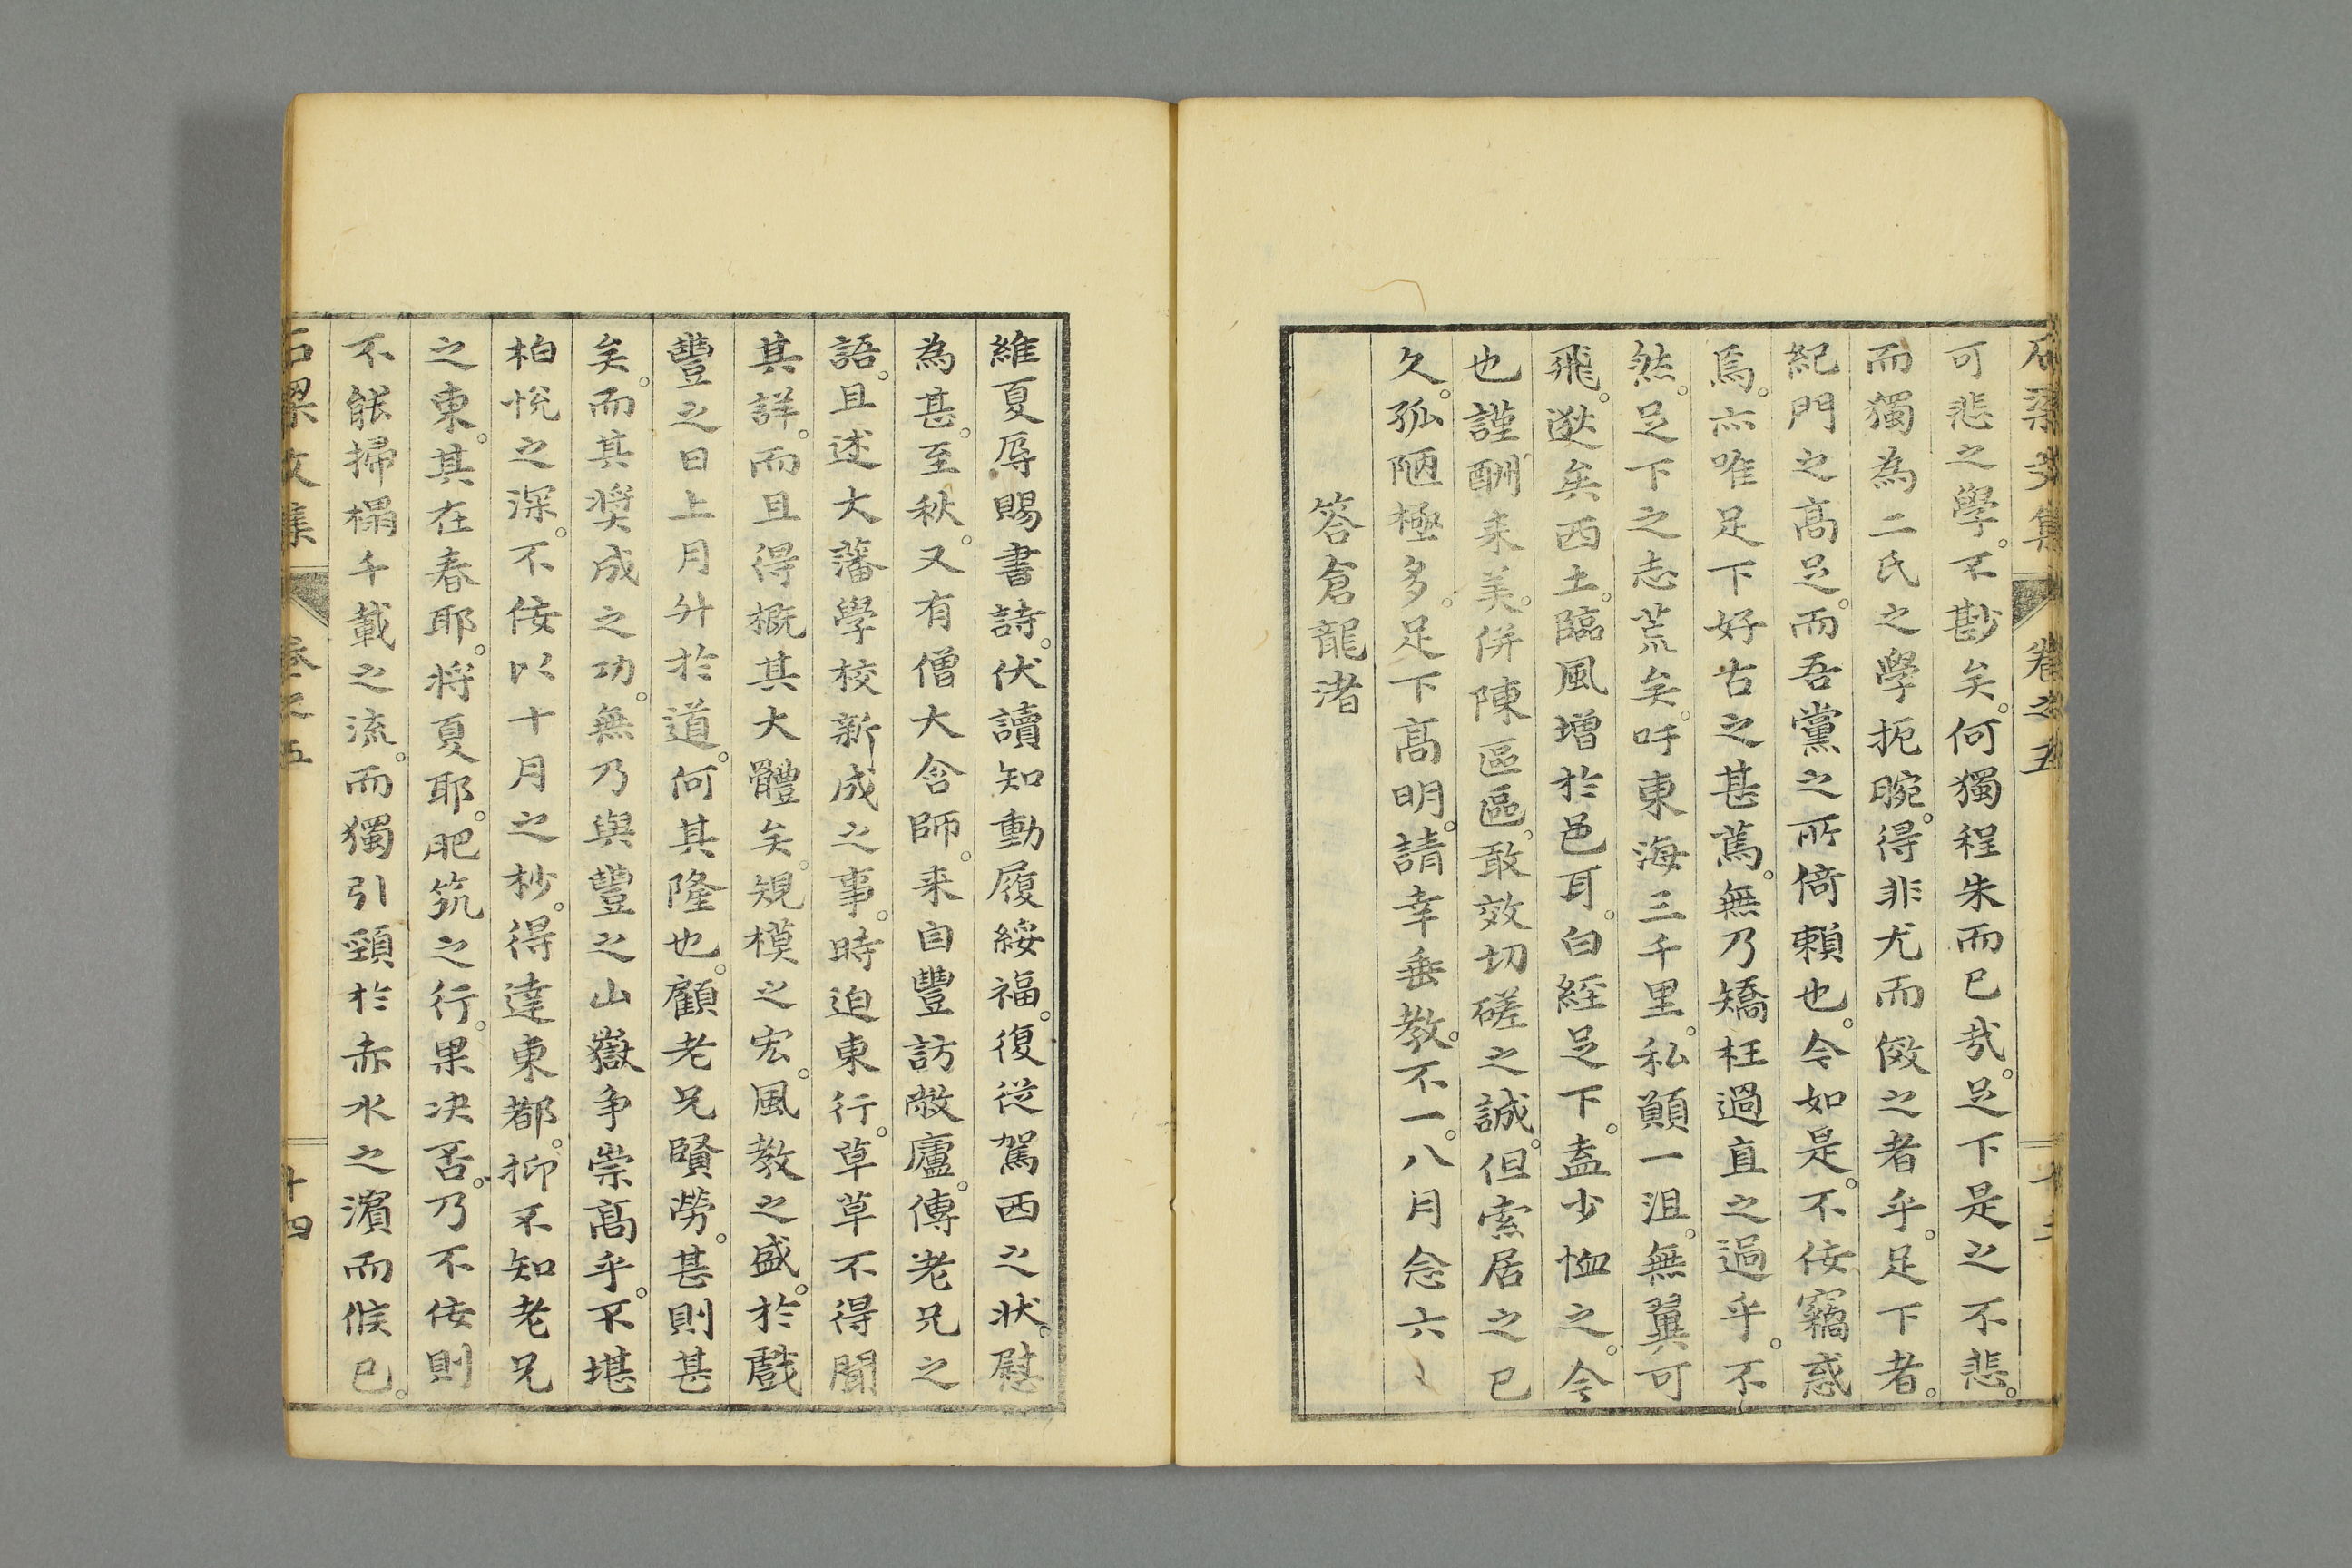 石梁文集 卷之五
可悲之學。不尠矣。何獨程朱而已哉。足下是之不悲。
而獨為二氏之學扼腕。得非尤而傚之者乎。足下者。
紀門之高足。而吾黨之所倚賴也。今如是。不佞竊惑
焉。亦唯足下好古之甚篤。無乃矯枉過直之過乎。不
然。足下之志荒矣。吁東海三千里。私顛一沮。無翼可
飛。逖矣西土。臨風增於邑耳。白經足下。盍少恤之。今
也謹酬来美。併陳區區。敢效切磋之誠。但索居之已
久。孤陋極多。足下高明。請幸垂教。不一。八月念六〻
答倉龍渚
維夏辱賜書詩。伏讀知動履綏福。復從駕西之状。慰
為甚。至秋。又有僧大含師。来自豐訪敝廬。傳老兄之
語。且述大藩學校新成之事。時迫東行。草草不得聞
其詳。而且得概其大體矣。規模之宏。風教之盛。於戲
豐之日上月升於道。何其隆也。顧老兄賢勞。甚則甚
矣。而其奨成之功。無乃與豐之山嶽争崇高乎。不堪
柏悅之深。不佞以十月之杪。得達東都。抑不知老兄
之東。其在春耶。将夏耶。肥筑之行。果决否。乃不佞則
不能掃榻千載之流。而獨引頸於赤水之濱而候已。
石梁文集 卷之五 十四